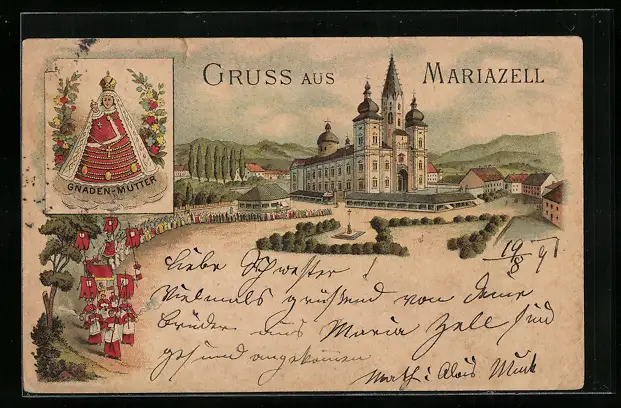 GRUSS AUS MARIAZELL
GNADEN-MUTTER
19/8 9
Liebe Schwester!
Vielmals grüßend von deine
Brüder aus Maria Zell sind
gesund angekommen
Math: Alois